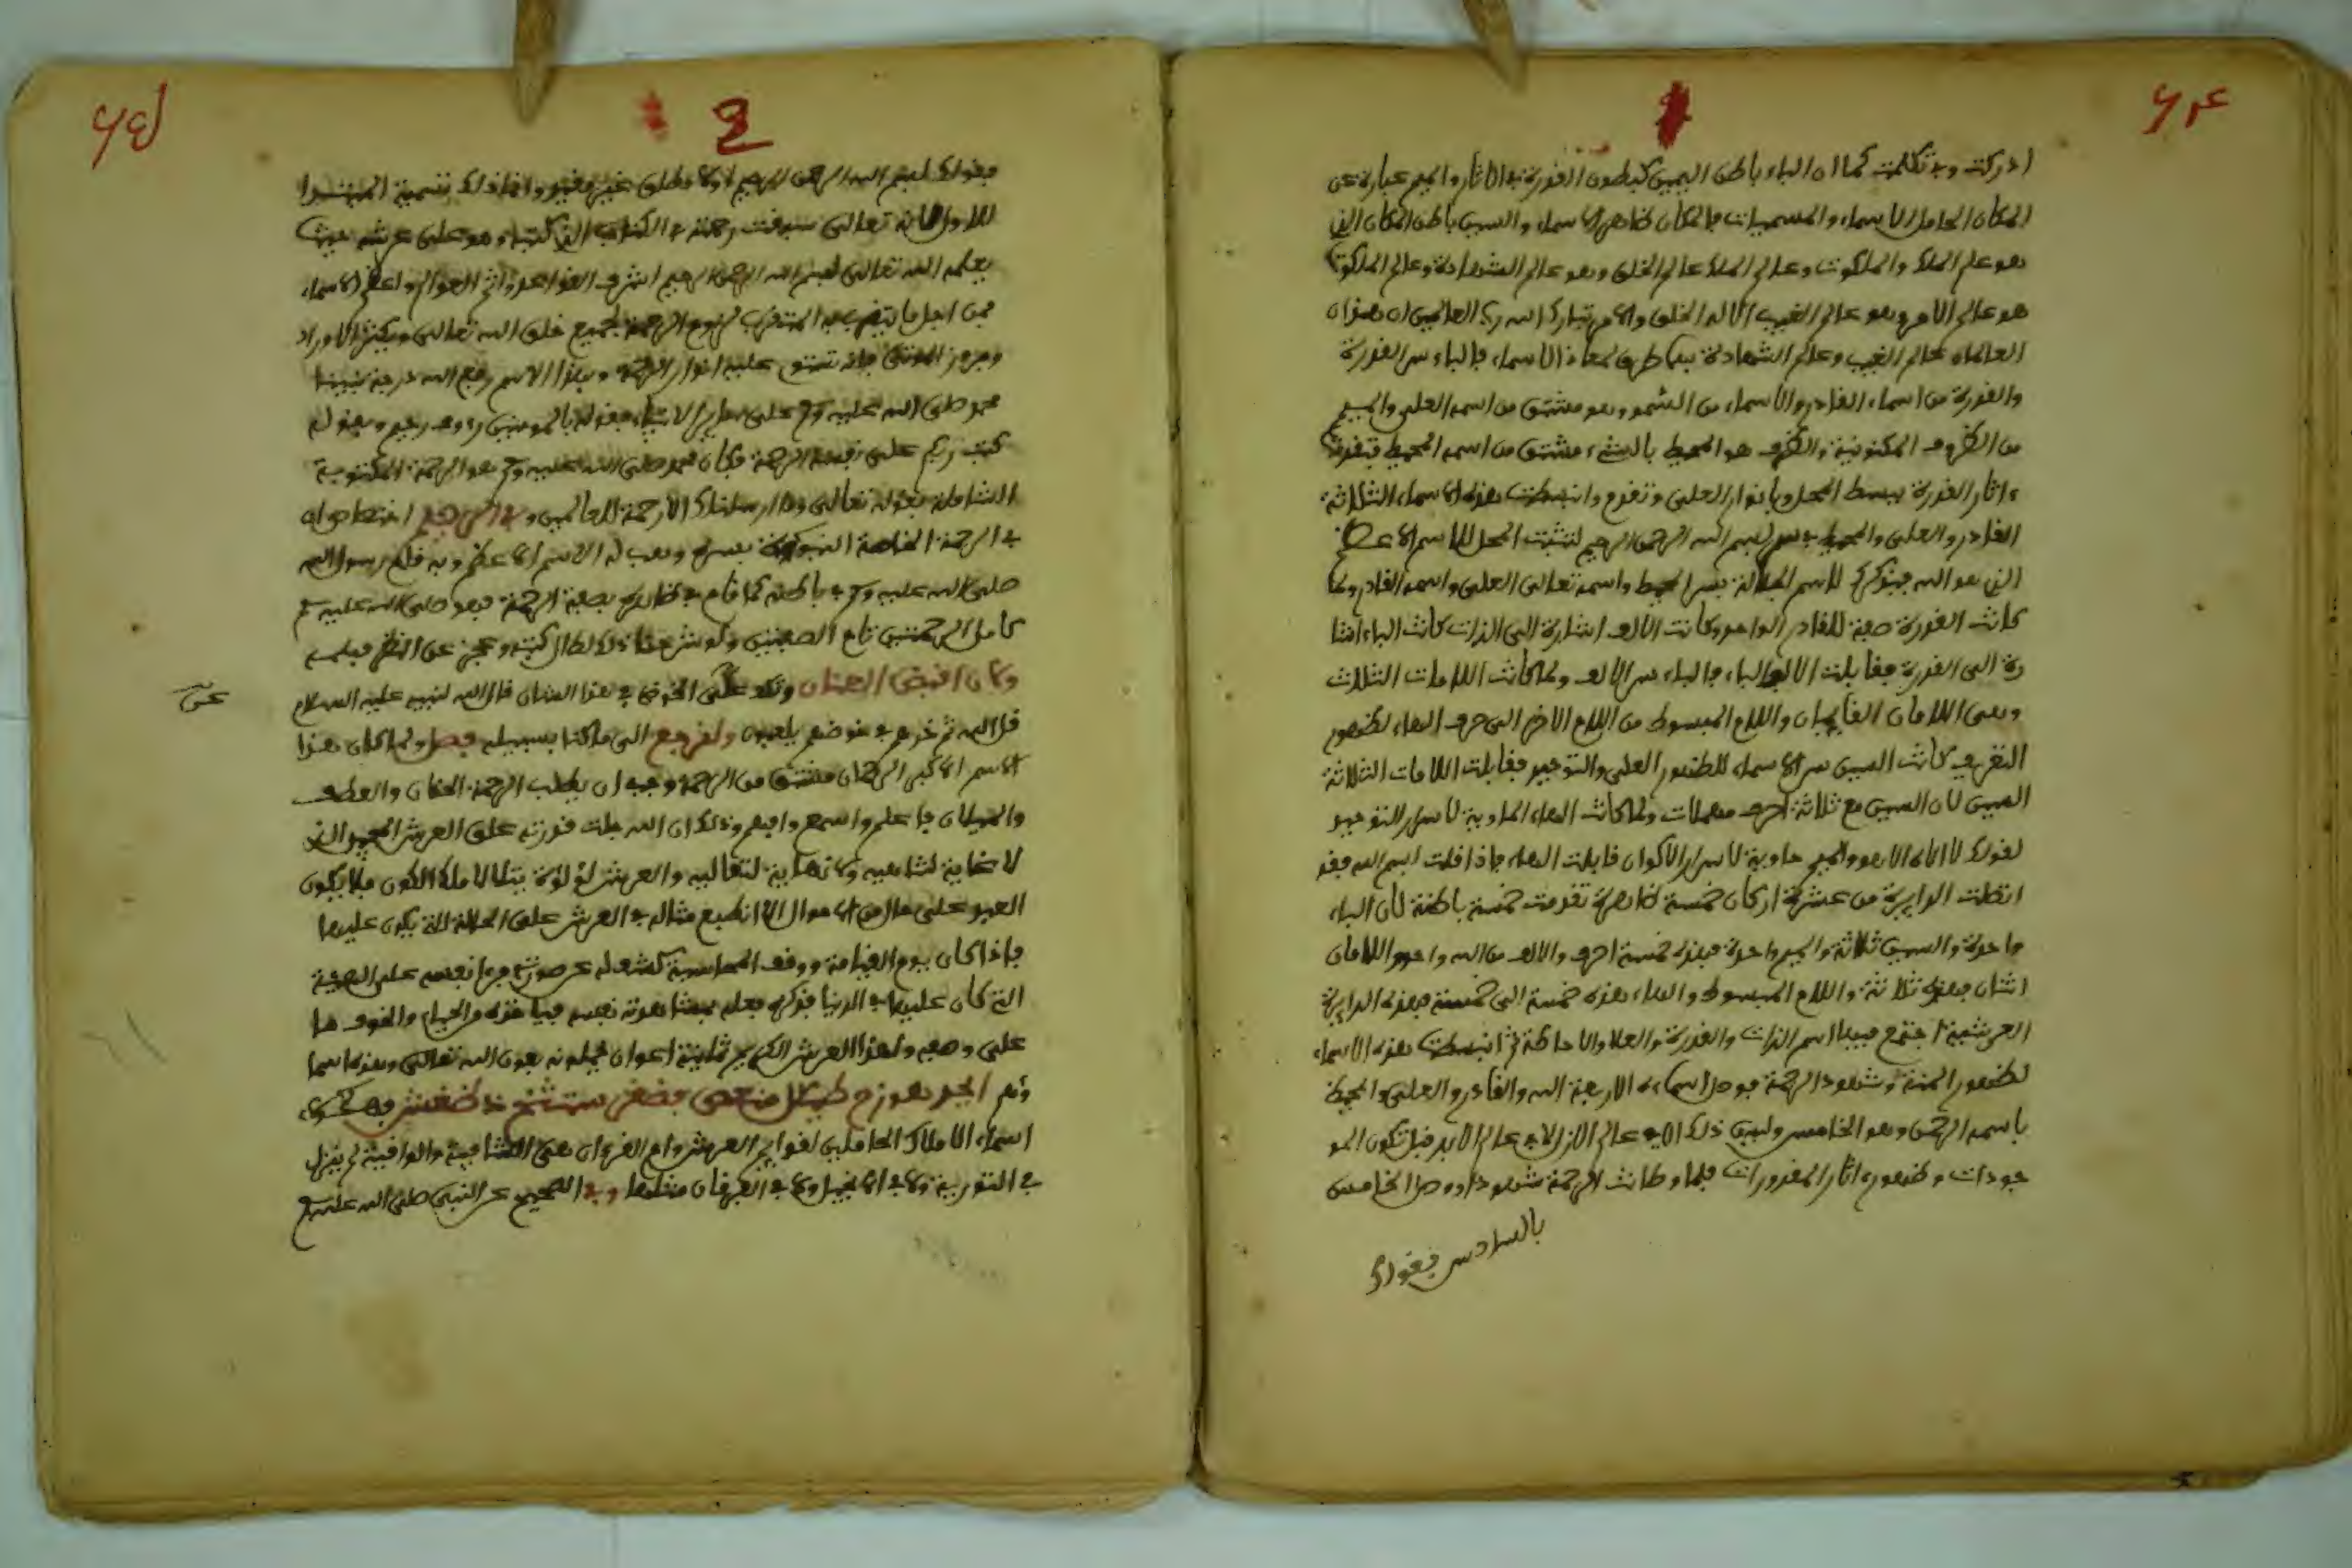 ادركت وبه تكلمت كما ان الباء باطن الميم كبطون القدرة في الاثار والميم عبارة عن
المكان الحامل للاسماء والمسميات فالمكان ظاهر الاسماء والسين باطن المكان الذي
هو عالم الملك والملكوت وعالم الملك عالم الخلق وهو عالم الشهادة وعالم الملكوت
هو عالم الامر وهو عالم الغيب الا له الخلق والامر تبارك الله رب العالمين ان هذان
العالمان عالم الغيب وعالم الشهادة هما طرفي الاسماء فالباء سر القدرة
والقدرة من اسماء القادر والاسماء من السمو وهو مشتق من اسمه العلي والميم
من الظروف المكنونية والظرف هو المحيط بالشيء مشتق من اسمه المحيط فتقدمت
اثار القدرة ببسط المحل وبانوار العلي وتقدم وانبسطت هذه الاسماء الثلاثة
القادر والعلي والمحيط في سر بسم الله الرحمن الرحيم لتثبت المحل للاسم الاعظم
الذي هو الله فيذكر الاسم الجلالة بسر المحيط واسمه تعالى العلي واسمه القادر ولما
كانت القدرة صفة للقادر الواحد وكانت الالف اشارة الى الذات كانت الباء اشا
رة الى القدرة فقابلت الالف الباء فالباء سر الالف ولما كانت اللامات الثلاث
وهي اللامان القائمان واللام المبسوط من اللام الاخر الى حرف الهاء لظهور
التعريف كانت السين سر الاسماء للظهور العلي والتوحيد فقابلت اللامات الثلاثة
السين لان السين مع ثلاثة احرف مهملات ولما كانت الهاء الحاوية لاسرار التوحيد
لقولك لا اله الا هو والميم حاوية لاسرار الاكوان قابلت الهاء فاذا قلت بسم الله فقد
اتصلت الدايرة من عشرة اركان خمسة ظاهرة تقدمت خمسة باطنة لان الباء
واحدة والسين ثلاثة والميم واحدة فهذه خمسة احرف والالف من الله واحد واللامان
اثنان فهذه ثلاثة واللام المبسوط والهاء هذه خمسة الى خمسة فهذه الدايرة
العرشية اجتمع فيها اسم الذات والقدرة والعلا والاحاطة ثم انبسطت هذه الاسماء
لظهور المنة وشهود الرحمة فوصل اسماءه الاربعة الله والقادر والعلي والمحيط
باسمه الرحمن وهو الخامس وليس ذلك الا في عالم الازل لا في عالم الابد قبل تكون المو
جودات وظهور اثار المقدورات فلما وصلت الرحمة شهودا ووصل الخامس
بالسادس فقولك
فقولك بسم الله الرحمن الرحيم اولا مطلق غير مقيد وانما ذلك تسمية المبتدا
للاول لانه تعالى سبقت رحمته في الكتاب الذي كتبه وهو على عرشه حيث
يعلم الله تعالى بسم الله الرحمن الرحيم اشرف القواعد واتم العوالم واعظم الاسماء
فمن اجل ما يتقرب به المتقرب لربه الرحمة لجميع خلق الله تعالى ويكثر الاوراد
عليه انوار الرحمة وبهذا الاسم رفع الله درجة نبينا
محمد صلى الله عليه وسلم على ساير الانبياء فقوله بالمومنين رءوف رحيم وبقوله
كتب ربكم على نفسه الرحمة فكان محمد صلى الله عليه وسلم هو الرحمة المكتوبة
الشاملة بقوله تعالى وما ارسلناك الا رحمة للعالمين وفي الرحيم
في الرحمة الخاصة النبوية بسره وهب له الاسم الاعظم وبه قام رسول الله
صلى الله عليه وسلم في باطنه كما قام في ظاهره بصفة الرحمة فهو صلى الله عليه وسلم
كامل الرحمتين تام الصفتين ولو شرحنا ذلك لطال كتبه وعجز عن النظر فيه
ولما ان افتضى العنان ونكد على الخوض في هذا الشان قال الله لنبيه عليه السلام
قل الله ثم ذرهم في خوضهم يلعبون ولنرجع الى ما كنا بسبيله فصل ولما كان هذا
الاسم الاكبر الرحمان مشتق من الرحمة وجب ان يطلب الرحمة الحنان والعطف
والميلان فاعلم واسمع وافهم وذلك ان الله جلت قدرته خلق العرش المجيد الذي
لا غاية لتناهيه ولا نهاية لتعاليه والعرش لؤلؤة يتلالا ملا الكون فلا يكون
العبد على حال من الاحوال الا انطبع مثاله في العرش على الحالة التي يكون عليها
فاذا كان يوم القيامة ووقف للمحاسبة كشف له عن صورته فراى نفسه على الصفة
التي كان عليها في الدنيا فذكره فعله بمشاهدته نفسه فياخذه من الحياء والخوف ما
على وصفه ولهذا العرش الكريم ثمانية اعوان يحملونه بعون الله تعالى وهذه اسما
وهم ابجد هوزح طيكل منصع فضقر ستثخ ذظغش فهذه
اسماء الاملاك الحاملين لقوايم العرش وام القرءان هي الشافية والوافية لم ينزل
في التورية ولا في الانجيل ولا في الفرقان مثلها وفي الصحيح عن النبي صلى الله عليه وسلم